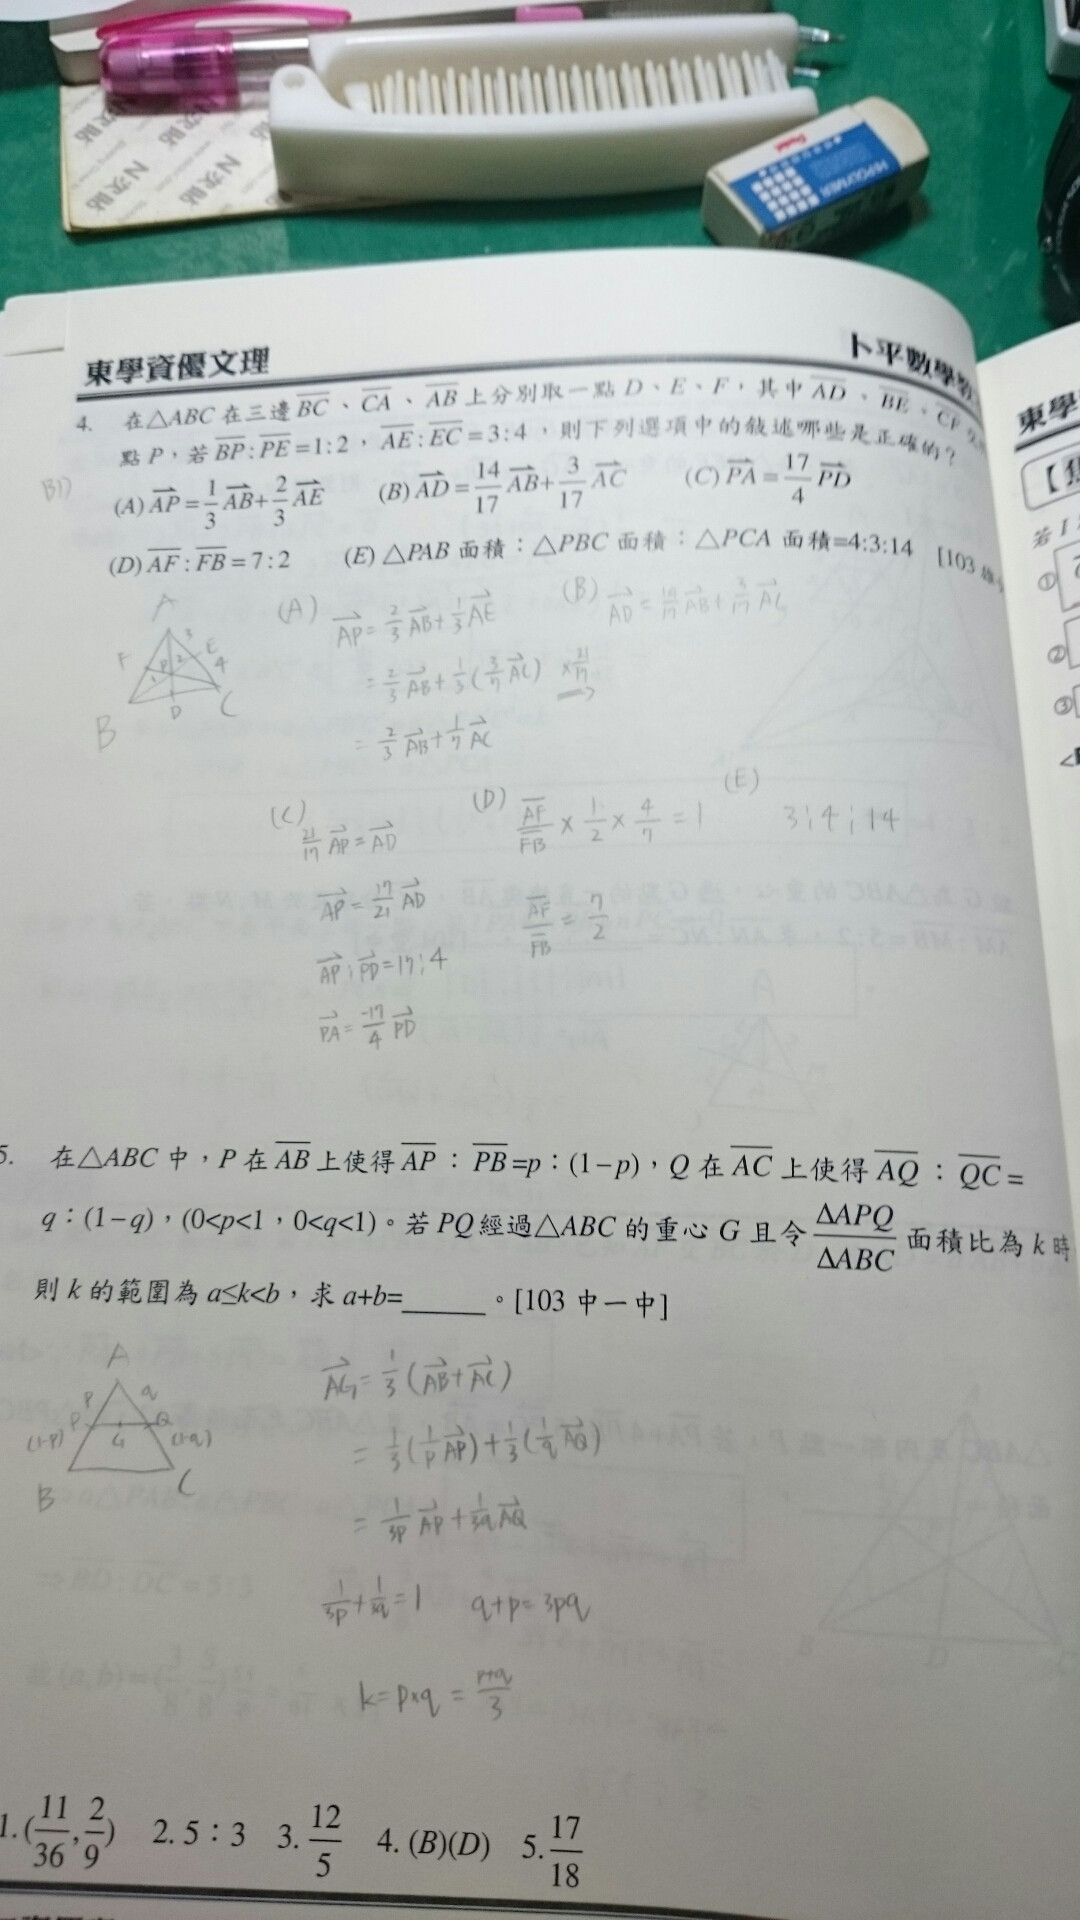 N次貼
N次貼
N次貼
N次貼
Pentel
HI-POLYMER
東學資優文理
卜平數學教
4. 在△ABC 在三邊 BC、CA、AB 上分別取一點 D、E、F,其中 AD、BE、CF 交
點 P,若 BP:PE=1:2,AE:EC=3:4,則下列選項中的敍述哪些是正確的?
BD
(A) AP=1/3 AB+2/3 AE (B) AD=14/17 AB+3/17 AC (C) PA=17/4 PD
(D) AF:FB=7:2 (E) △PAB 面積:△PBC 面積:△PCA 面積=4:3:14 [103
A
F P E
3 2 4 1
B D C
(A) AP=2/3 AB+1/3 AE
=2/3 AB+1/3(3/7 AC) ×21/17
=2/3 AB+1/7 AC
(B) AD=14/17 AB+3/17 AC
(C) 21/17 AP=AD
AP=17/21 AD
AP:PD=17:4
PA=-17/4 PD
(D) AF/FB×1/2×4/7=1
AF/FB=7/2
(E) 3:4:14
5. 在△ABC 中,P 在 AB 上使得 AP:PB=p:(1-p),Q 在 AC 上使得 AQ:QC=
q:(1-q),(0<p<1,0<q<1)。若 PQ 經過△ABC 的重心 G 且令 ΔAPQ/ΔABC 面積比為 k 時
則 k 的範圍為 a≤k<b,求 a+b=______。[103 中一中]
A
P q
P G Q
(1-p) (1-q)
B C
AG=1/3(AB+AC)
=1/3(1/p AP)+1/3(1/q AQ)
=1/3p AP+1/3q AQ
1/3p+1/3q=1 q+p=3pq
k=p×q=p+q/3
1.(11/36,2/9) 2. 5:3 3. 12/5 4. (B)(D) 5. 17/18
東學
【焦
若 I
①
②
③